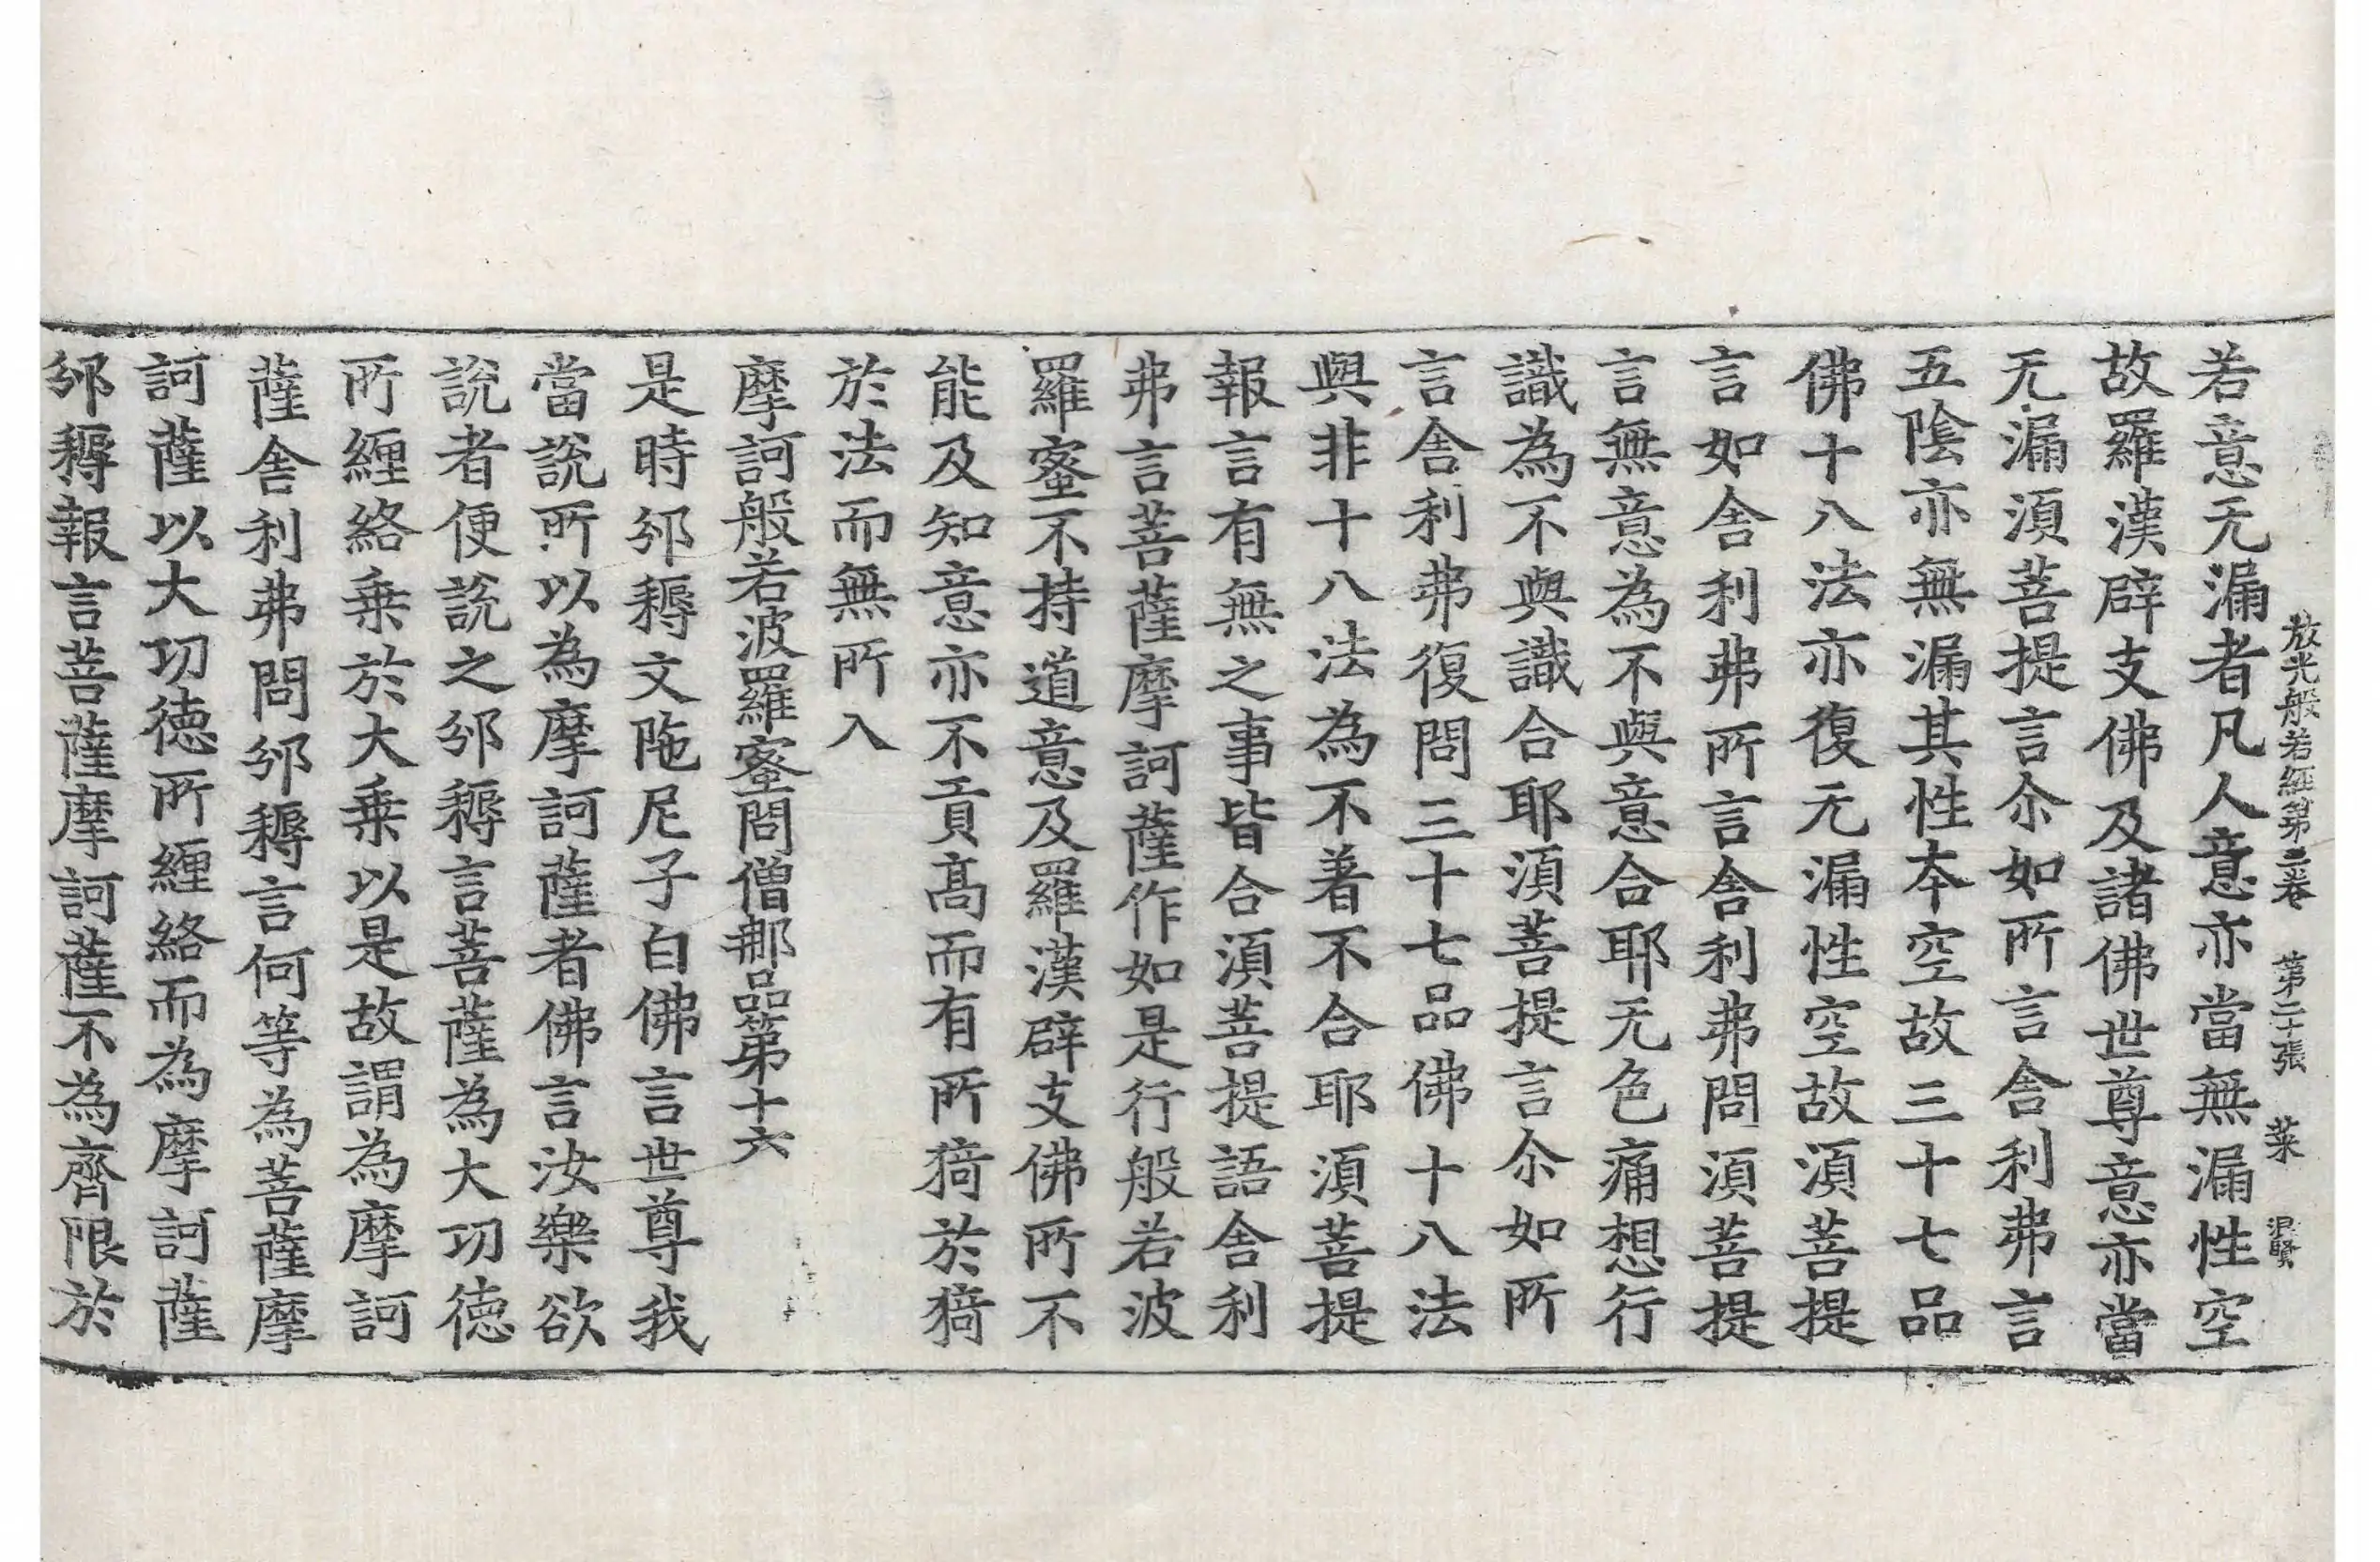 放光般若經第三卷　第二十張　菜　混賢
若意无漏者凡人意亦當無漏性空
故羅漢辟支佛及諸佛世尊意亦當
无漏須菩提言尒如所言舍利弗言
五陰亦無漏其性本空故三十七品
佛十八法亦復无漏性空故須菩提
言如舍利弗所言舍利弗問須菩提
言無意為不與意合耶无色痛想行
識為不與識合耶須菩提言尒如所
言舍利弗復問三十七品佛十八法
與非十八法為不著不合耶須菩提
報言有無之事皆合須菩提語舍利
弗言菩薩摩訶薩作如是行般若波
羅蜜不持道意及羅漢辟支佛所不
能及知意亦不貢髙而有所猗於猗
於法而無所入
摩訶般若波羅蜜問僧那品第十六
是時邠耨文陁尼子白佛言世尊我
當說所以為摩訶薩者佛言汝樂欲
說者便說之邠耨言菩薩為大功德
所纏絡乗於大乗以是故謂為摩訶
薩舍利弗問邠耨言何等為菩薩摩
訶薩以大功德所纏絡而為摩訶薩
邠耨報言菩薩摩訶薩不為齊限於